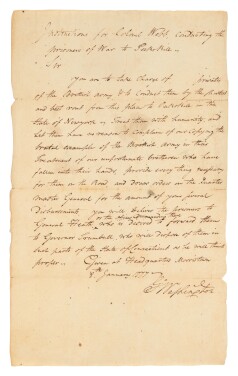 Instructions for Colonel Webb, conducting the
prisoners of War to Peekskill
Sir
you are to take Charge of privates
of the British Army & to Conduct them by the shortest
and best road from this place to Peekskill in the
State of Newyork. Treat them with humanity, and
Let them have no reason to Complain of our Copying the
brutal example of the British army in their
Treatment of our unfortunate brethren who have
fallen into their hands, provide every thing necessary
for them on the Road, and draw orders on the Quarter
Master General for the amount of your
Disbursements. you will deliver to
General Heath, who is Directed to forward them
to Governor Trumbull, who will dispose of them in
such parts of the State of Connecticut as he will think
proper. Given at Headquarters Morristown
8th January 1777
G Washington